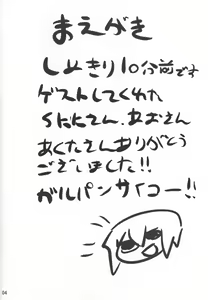 まえがき
しめきり10分前です
ゲストしてくれた
Sににさん、あおさん
あくたさんありがとう
ございました!!
ガルパンサイコー!!
04